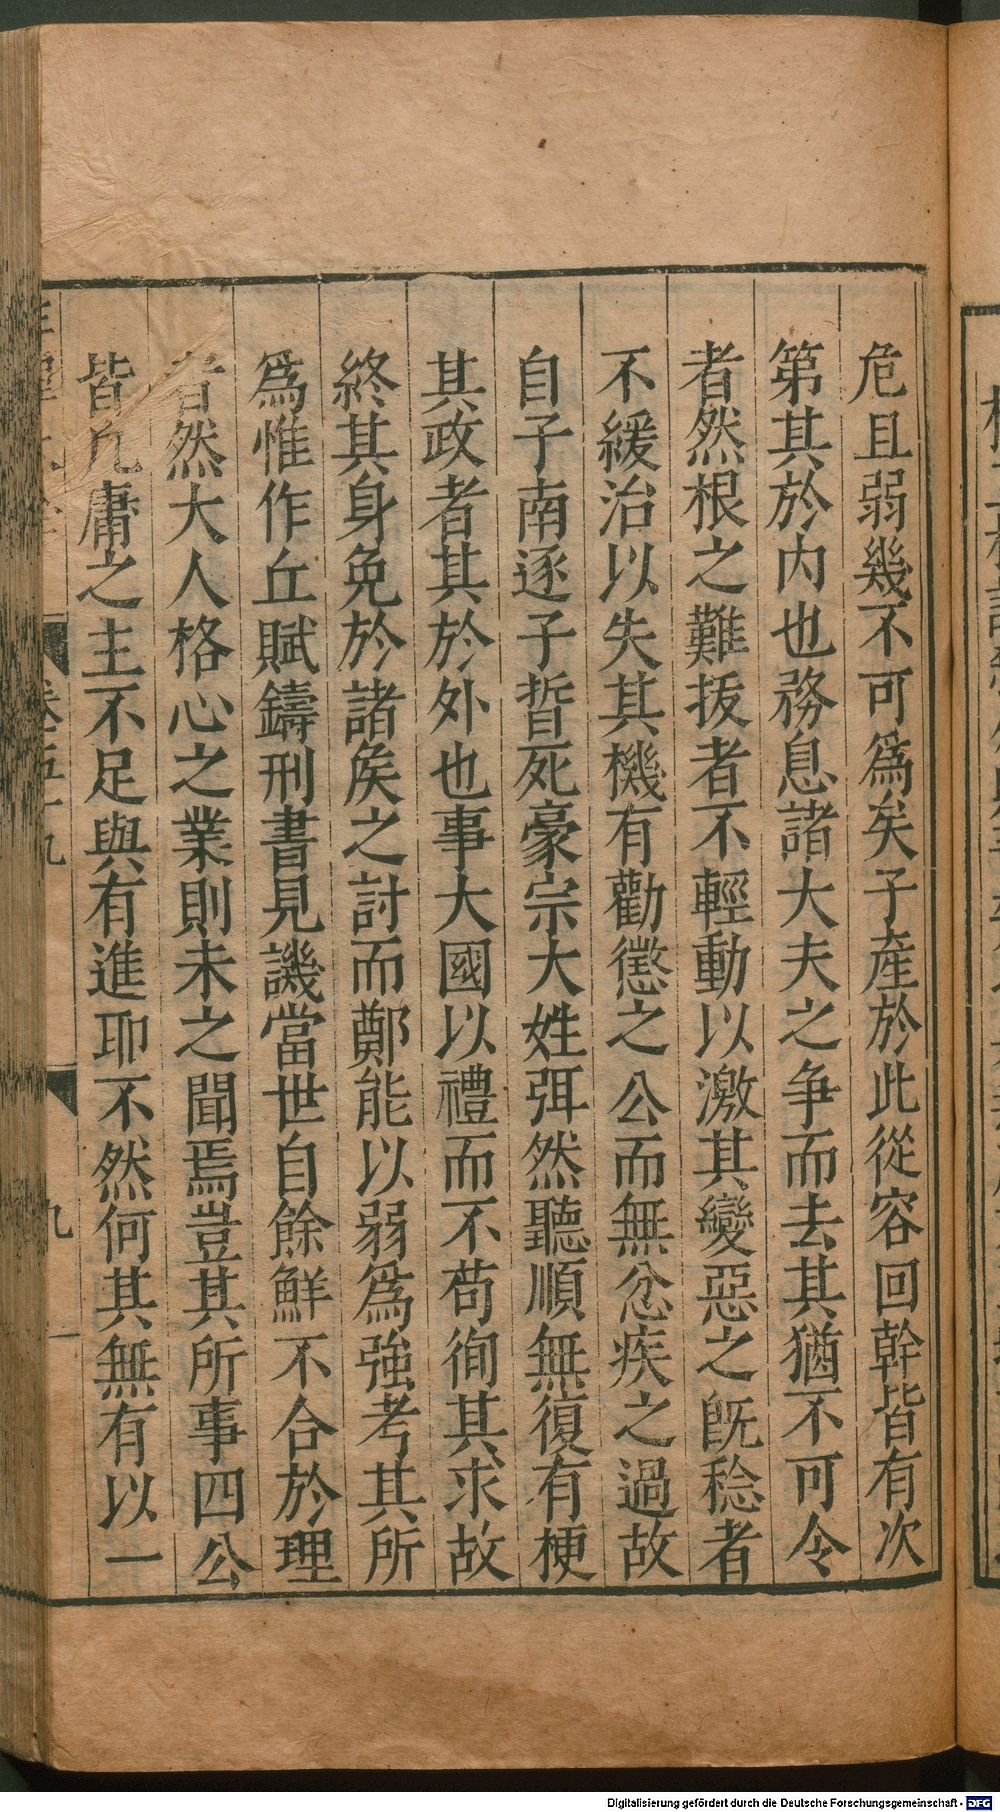 危且弱幾不可爲矣子產於此從容回幹皆有次
第其於內也務息諸大夫之爭而去其猶不可令
者然根之難拔者不輕動以激其變惡之旣稔者
不緩治以失其機有勸懲之公而無忿疾之過故
自子南逐子晳死豪宗大姓弭然聽順無復有梗
其政者其於外也事大國以禮而不苟徇其求故
終其身免於諸矦之討而鄭能以弱爲強考其所
爲惟作丘賦鑄刑書見譏當世自餘鮮不合於理
者然大人格心之業則未之聞焉豈其所事四公
皆凡庸之主不足與有進耶不然何其無有以一
卷五十九
九
Digitalisierung gefördert durch die Deutsche Forschungsgemeinschaft - DFG